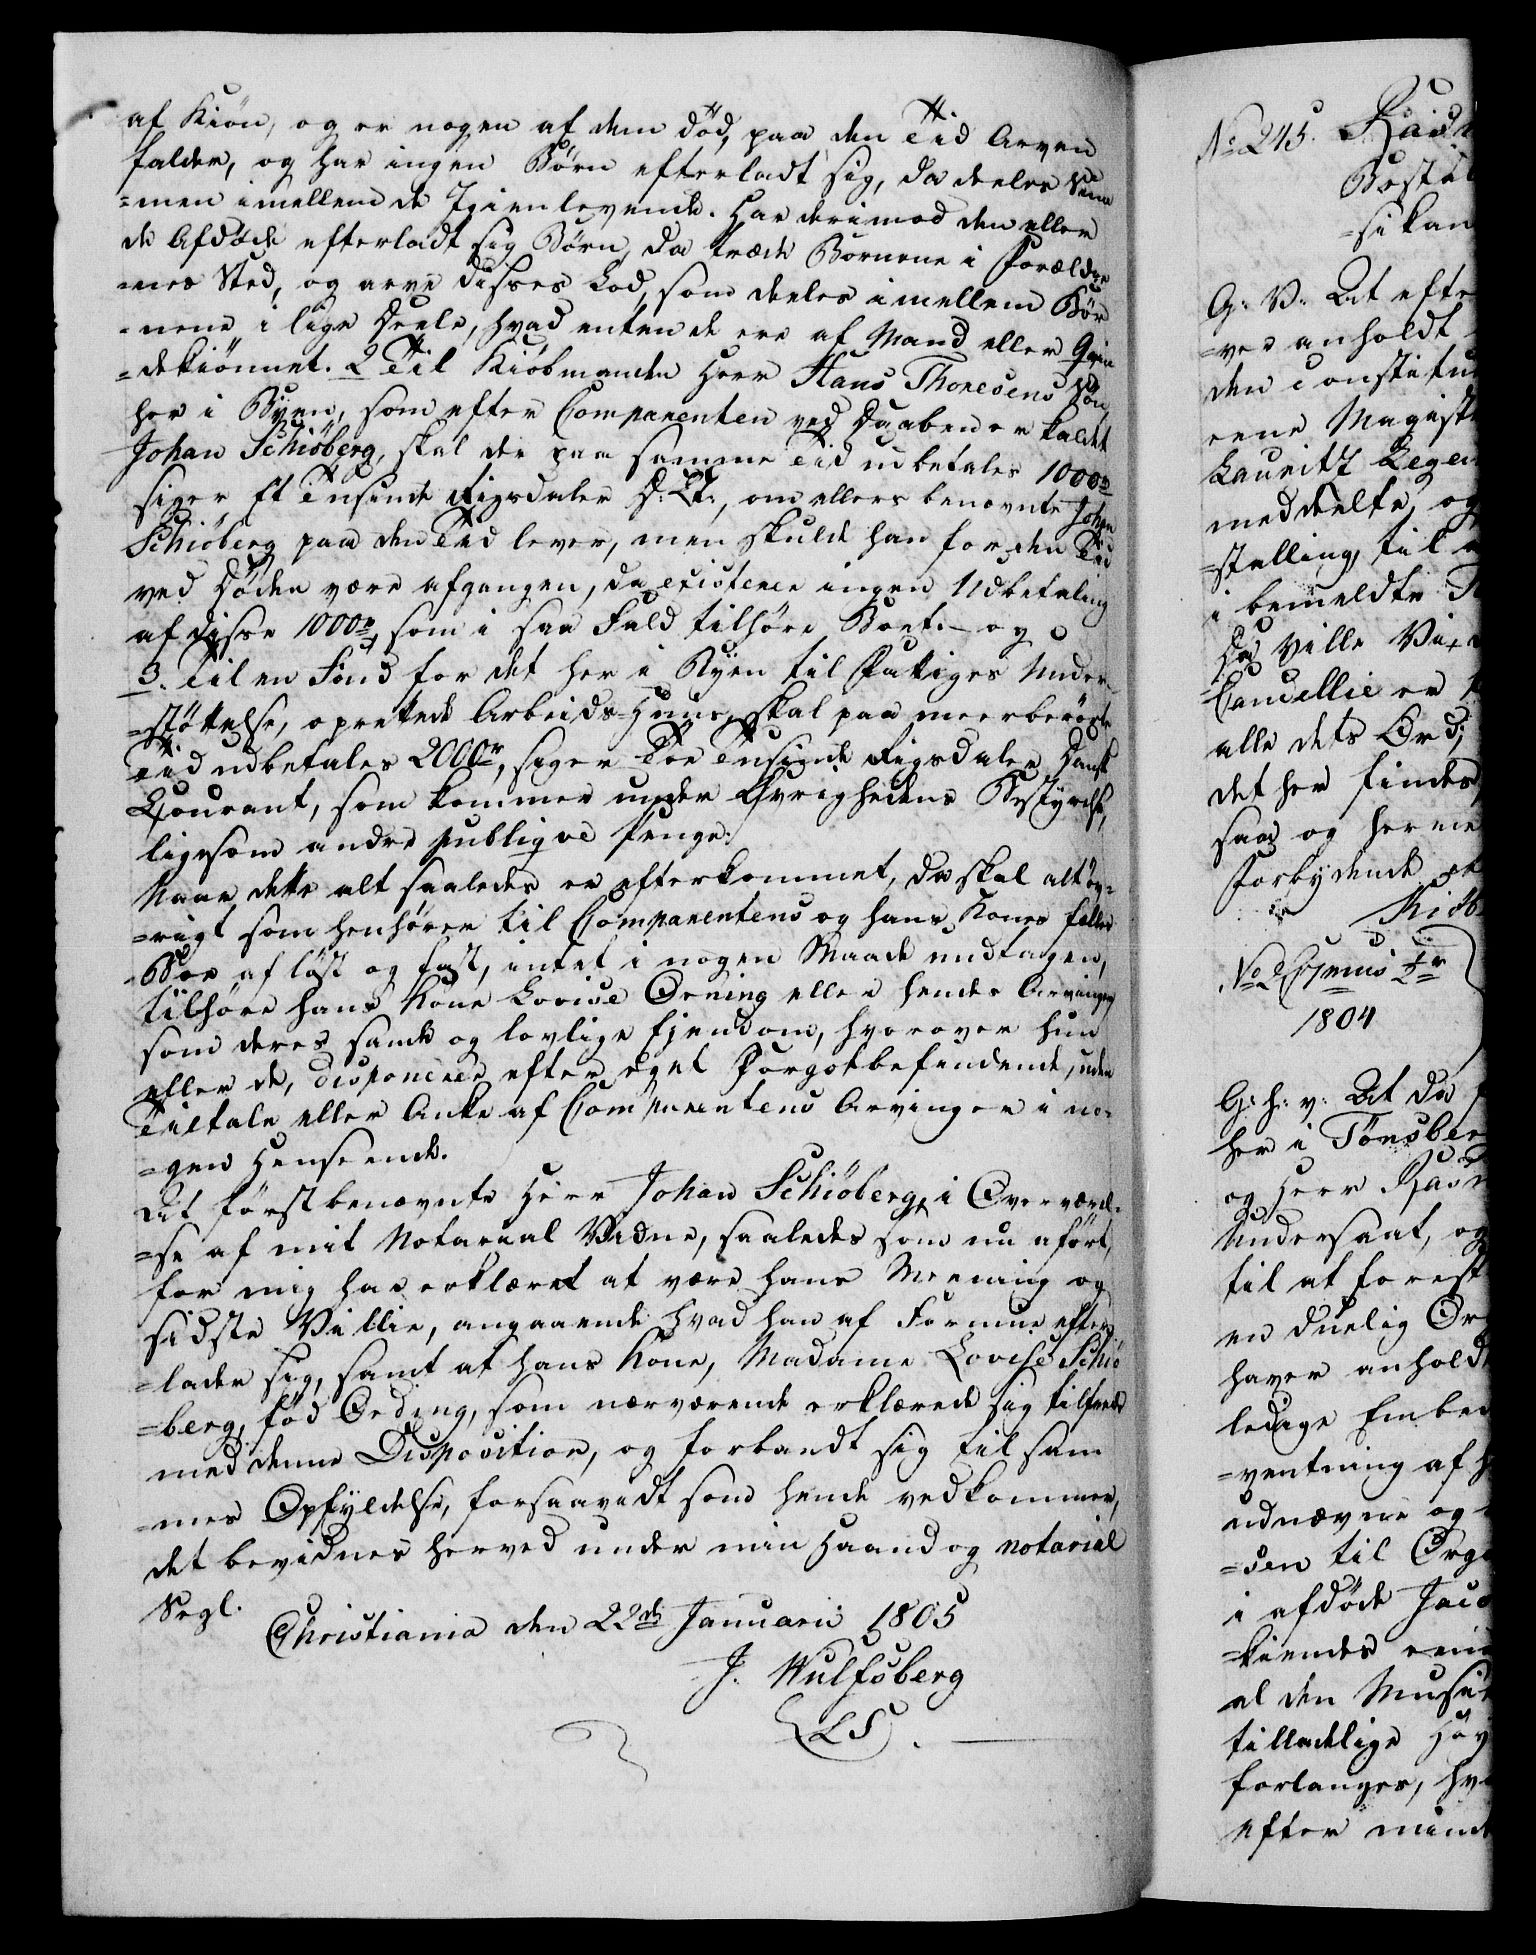 af Kiøn, og er nogen af dem død, paa den Tid Arven
falder, og har ingen Børn efterladt sig, da deeles Sum
=men imellem de Igienlevende. Har derimod den eller
de Afdøde efterladt sig Børn, da træde Børnene i Forældre
=nes Sted, og arve disses Lod, som deeles imellem Bør
=nene i lige Deele, hvad enten de ere af Mand eller Qvin
=dekiønnet. 2 Til Kiøbmanden Herr Hans Thoresens Søn,
her i Byen, som efter Comparenten ved Daaben er kaldet
Johan Schiøberg, skal der paa samme Tid udbetales 1000 rd
siger Et Tusinde Rigsdaler D: Ct:, om ellers benævnte Johan
Schiøberg paa den Tid lever, men skulde han for den Tid
ved Døden være afgangen, da existerer ingen Udbetaling
af disse 1000 rd, som i saa Fald tilhøre Boet: - og
3. Til en Fond for det her i Byen til Fattiges Under
=støttelse, oprettede Arbeids-Huus, skal paa meerberørte
Tid udbetales 2000 r, siger Toe Tusinde Rigsdaler Dansk
Courant, som kommer under Øvrighedens Bestyrelse,
ligesom andre publiqve Penge.
Naar dette alt saaledes er efterkommet, da skal alt øv=
=rigt som henhører til Comparentens og hans Kones fælles
Boe af løst og fast, intet i nogen Maade undtagen,
tilhøre hans Kone Lovise Ørning eller hendes Arvinger
som deres sande og lovlige Ejendom, hvorover hun
eller de, disponerer efter eget Forgotbefindende, uden
Tiltale eller Anke af Comparentens Arvinger i no=
=gen Henseende.
At førstbenævnte Herr Johan Schiøberg, i Overværel=
=se af mit Notarial Vidne, saaledes som nu anført,
for mig har erklæret at være hans Meening og
sidste Villie, angaaende hvad han af Formue efter
=lader sig, samt at hans Kone, Madame Lovise Schiø
=berg, fød Ørding, som nærværende erklærede sig tilfreds
med denne Disposition, og forbandt sig til sam
=mes Opfyldelse, forsaavidt som hende vedkommer,
det bevidnes herved under min Haand og notarial
Segl.
Christiania den 22de Januarii 1805
J. Wulfsberg
LS.
No 245.
Bestal
=si kan
G: V: At efte
=ver anholdt
den constitu
eene Magist
Lauritz
meddeelte, og
=stalling, til
i bemeldte
Da ville Vi,
Cancellie er
alle dets Ord,
det her findes
saa og herme
Forbydende
Kiøb
1804
G: h: v: At da
her i Tønsber
og Herr
Undersaat, og
til at forest
en duelig Or
haver anhold
ledige Embe
=ventning af
udnævne og
=den til Orga
i afdøde Jaco
=kiendes
al den Musi
tilladelige
forlanges, hv
efter mind